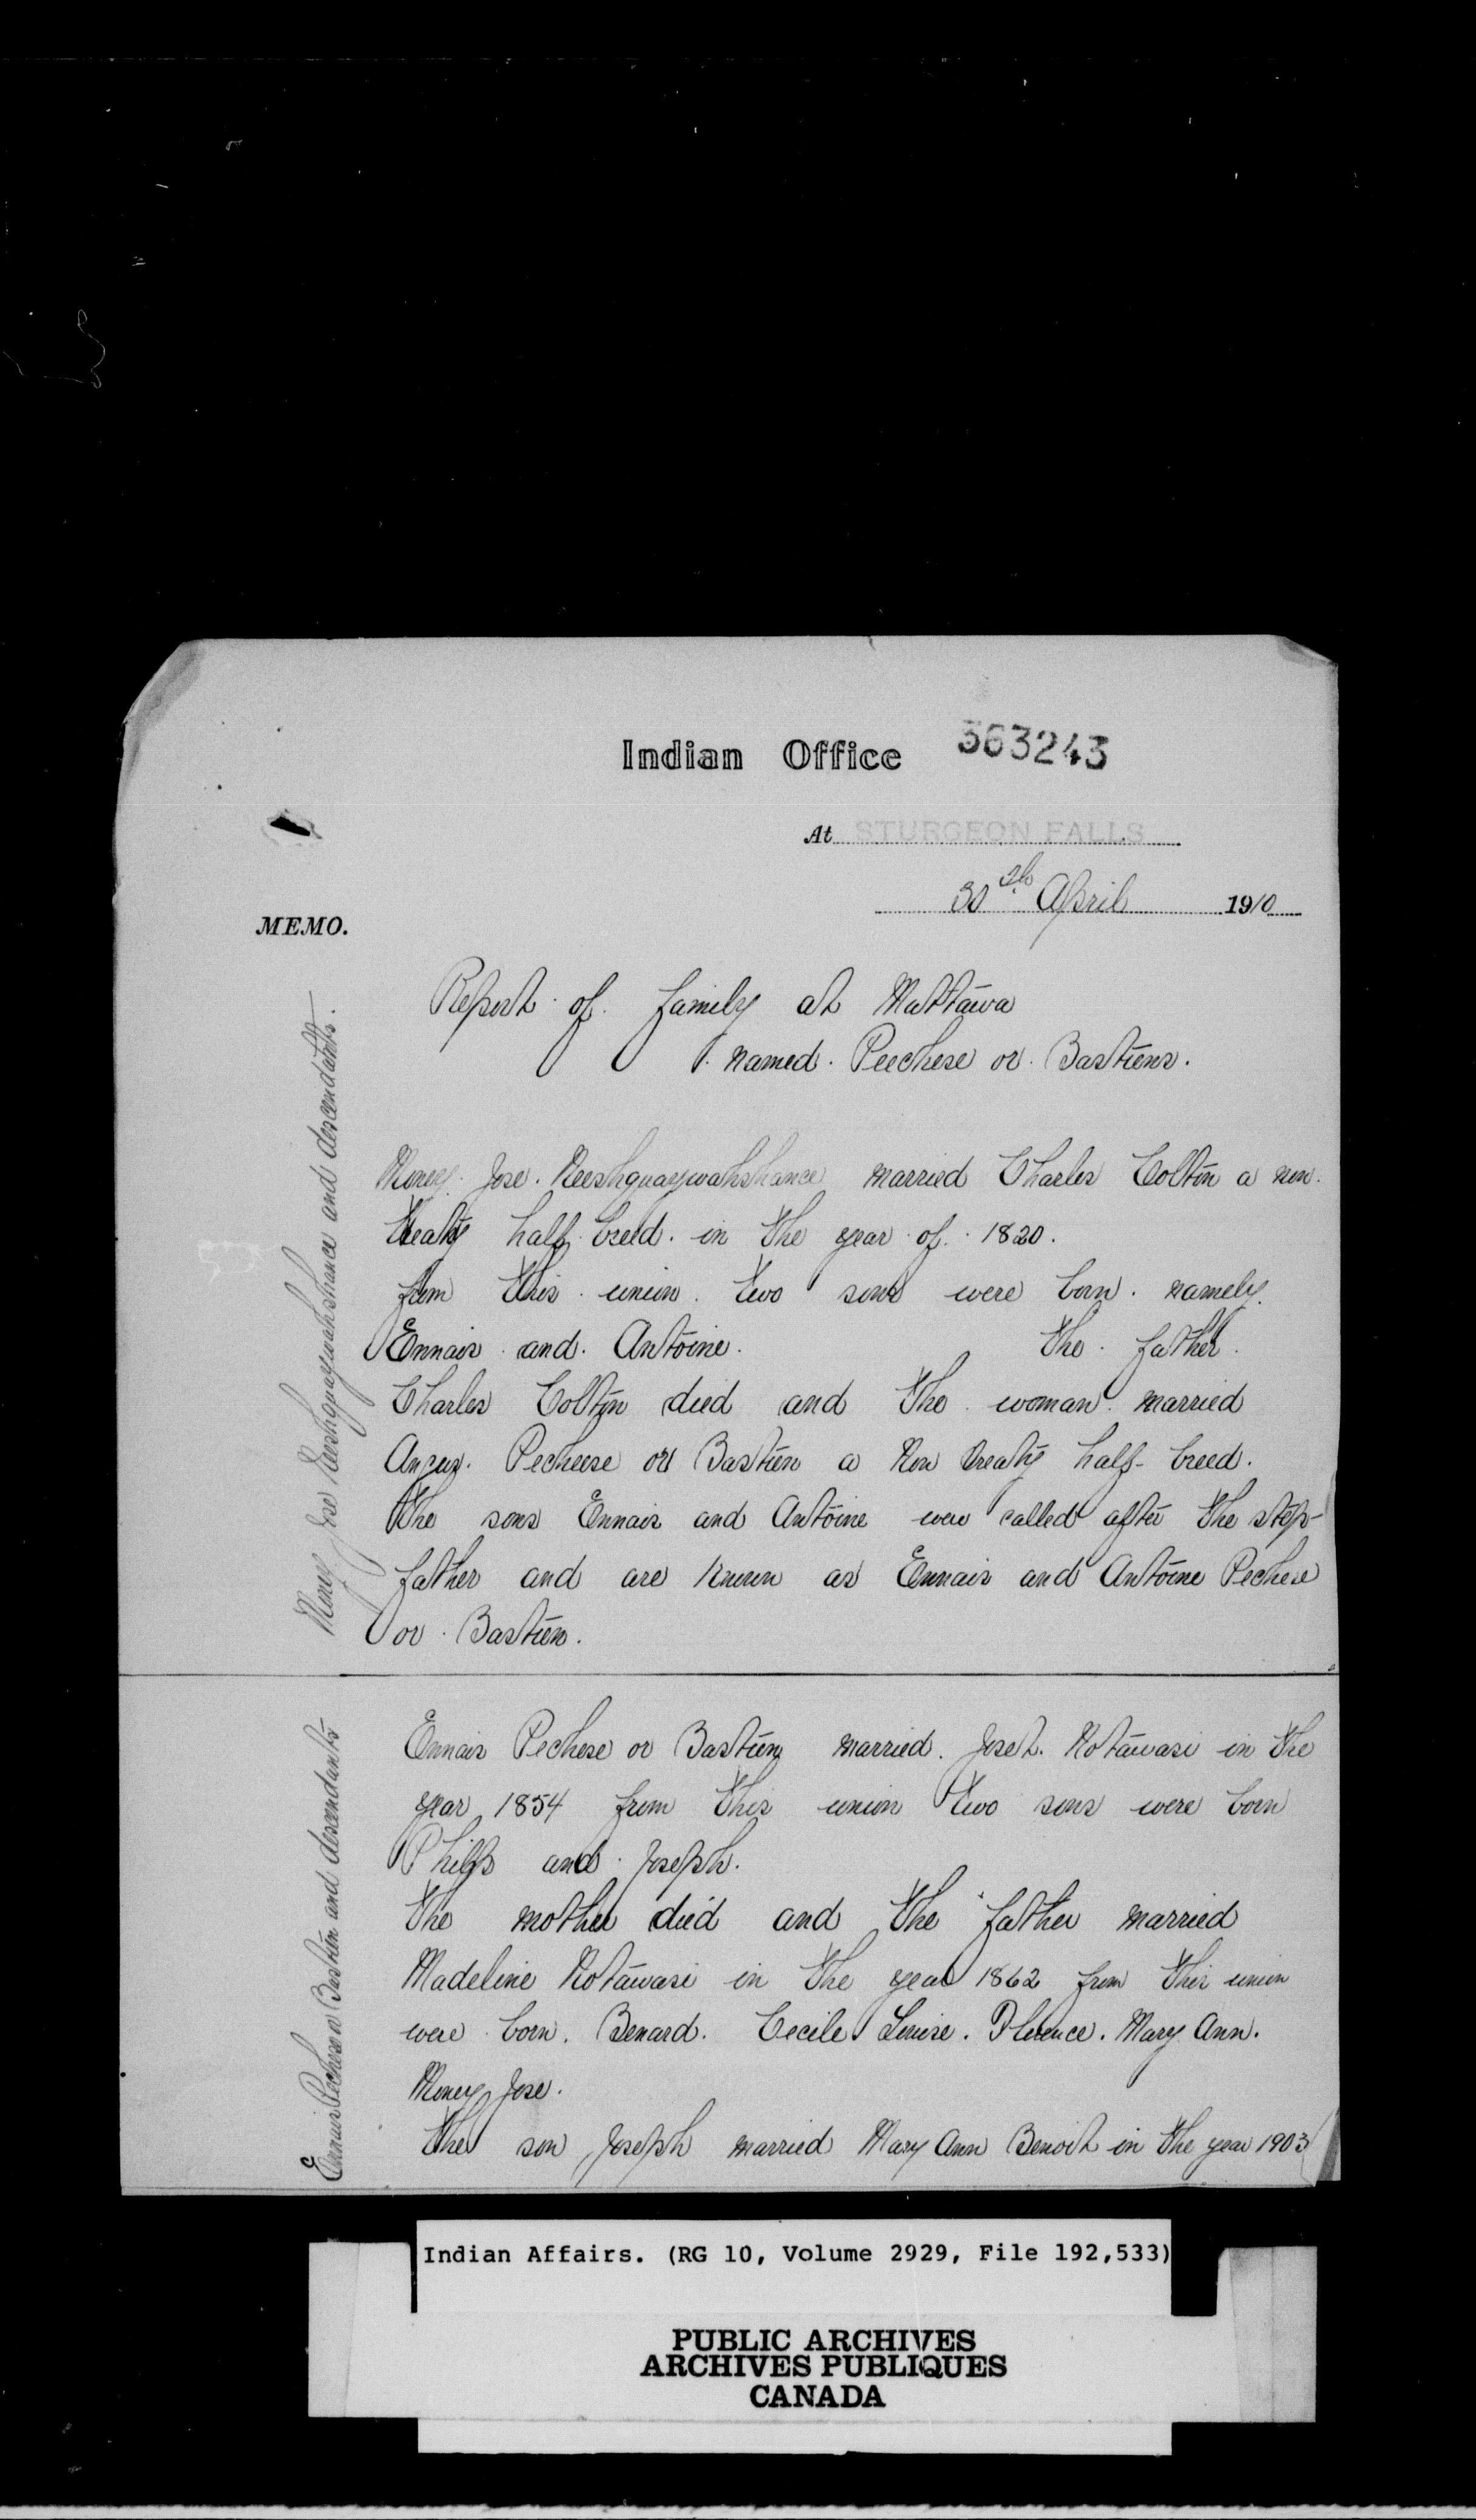 Indian Office 363243
At STURGEON FALLS
30th April 1910
MEMO.
Report of family at Mattawa
named Peechese or Bastiens.
Money Jose Keeshguaywahshance and descendants.
Money Jose. Keeshguaywahshance married Charles Colton a non.
treaty half breed. in the year of 1820.
from this union two sons were born. namely.
Ennais and Antoine. the father.
Charles Colton died and the woman married
Angus. Pecheese or Bastien a Non treaty half-breed.
The sons Ennais and Antoine were called after the step-
father and are known as Ennais and Antoine Pechese
or Bastien.
Ennais Pechese or Bastien and descendants
Ennais Pechese or Bastien married. Joset. Kotawasi in the
year 1854 from this union two sons were born
Philip and Joseph.
The mother died and the father married
Madeline Kotawasi in the year 1862 from this union
were born. Benard. Cecile Louise. Florence. Mary Ann.
Money Jose.
The son Joseph married Mary Ann Benoit in the year 1903
Indian Affairs. (RG 10, Volume 2929, File 192,533)
PUBLIC ARCHIVES
ARCHIVES PUBLIQUES
CANADA